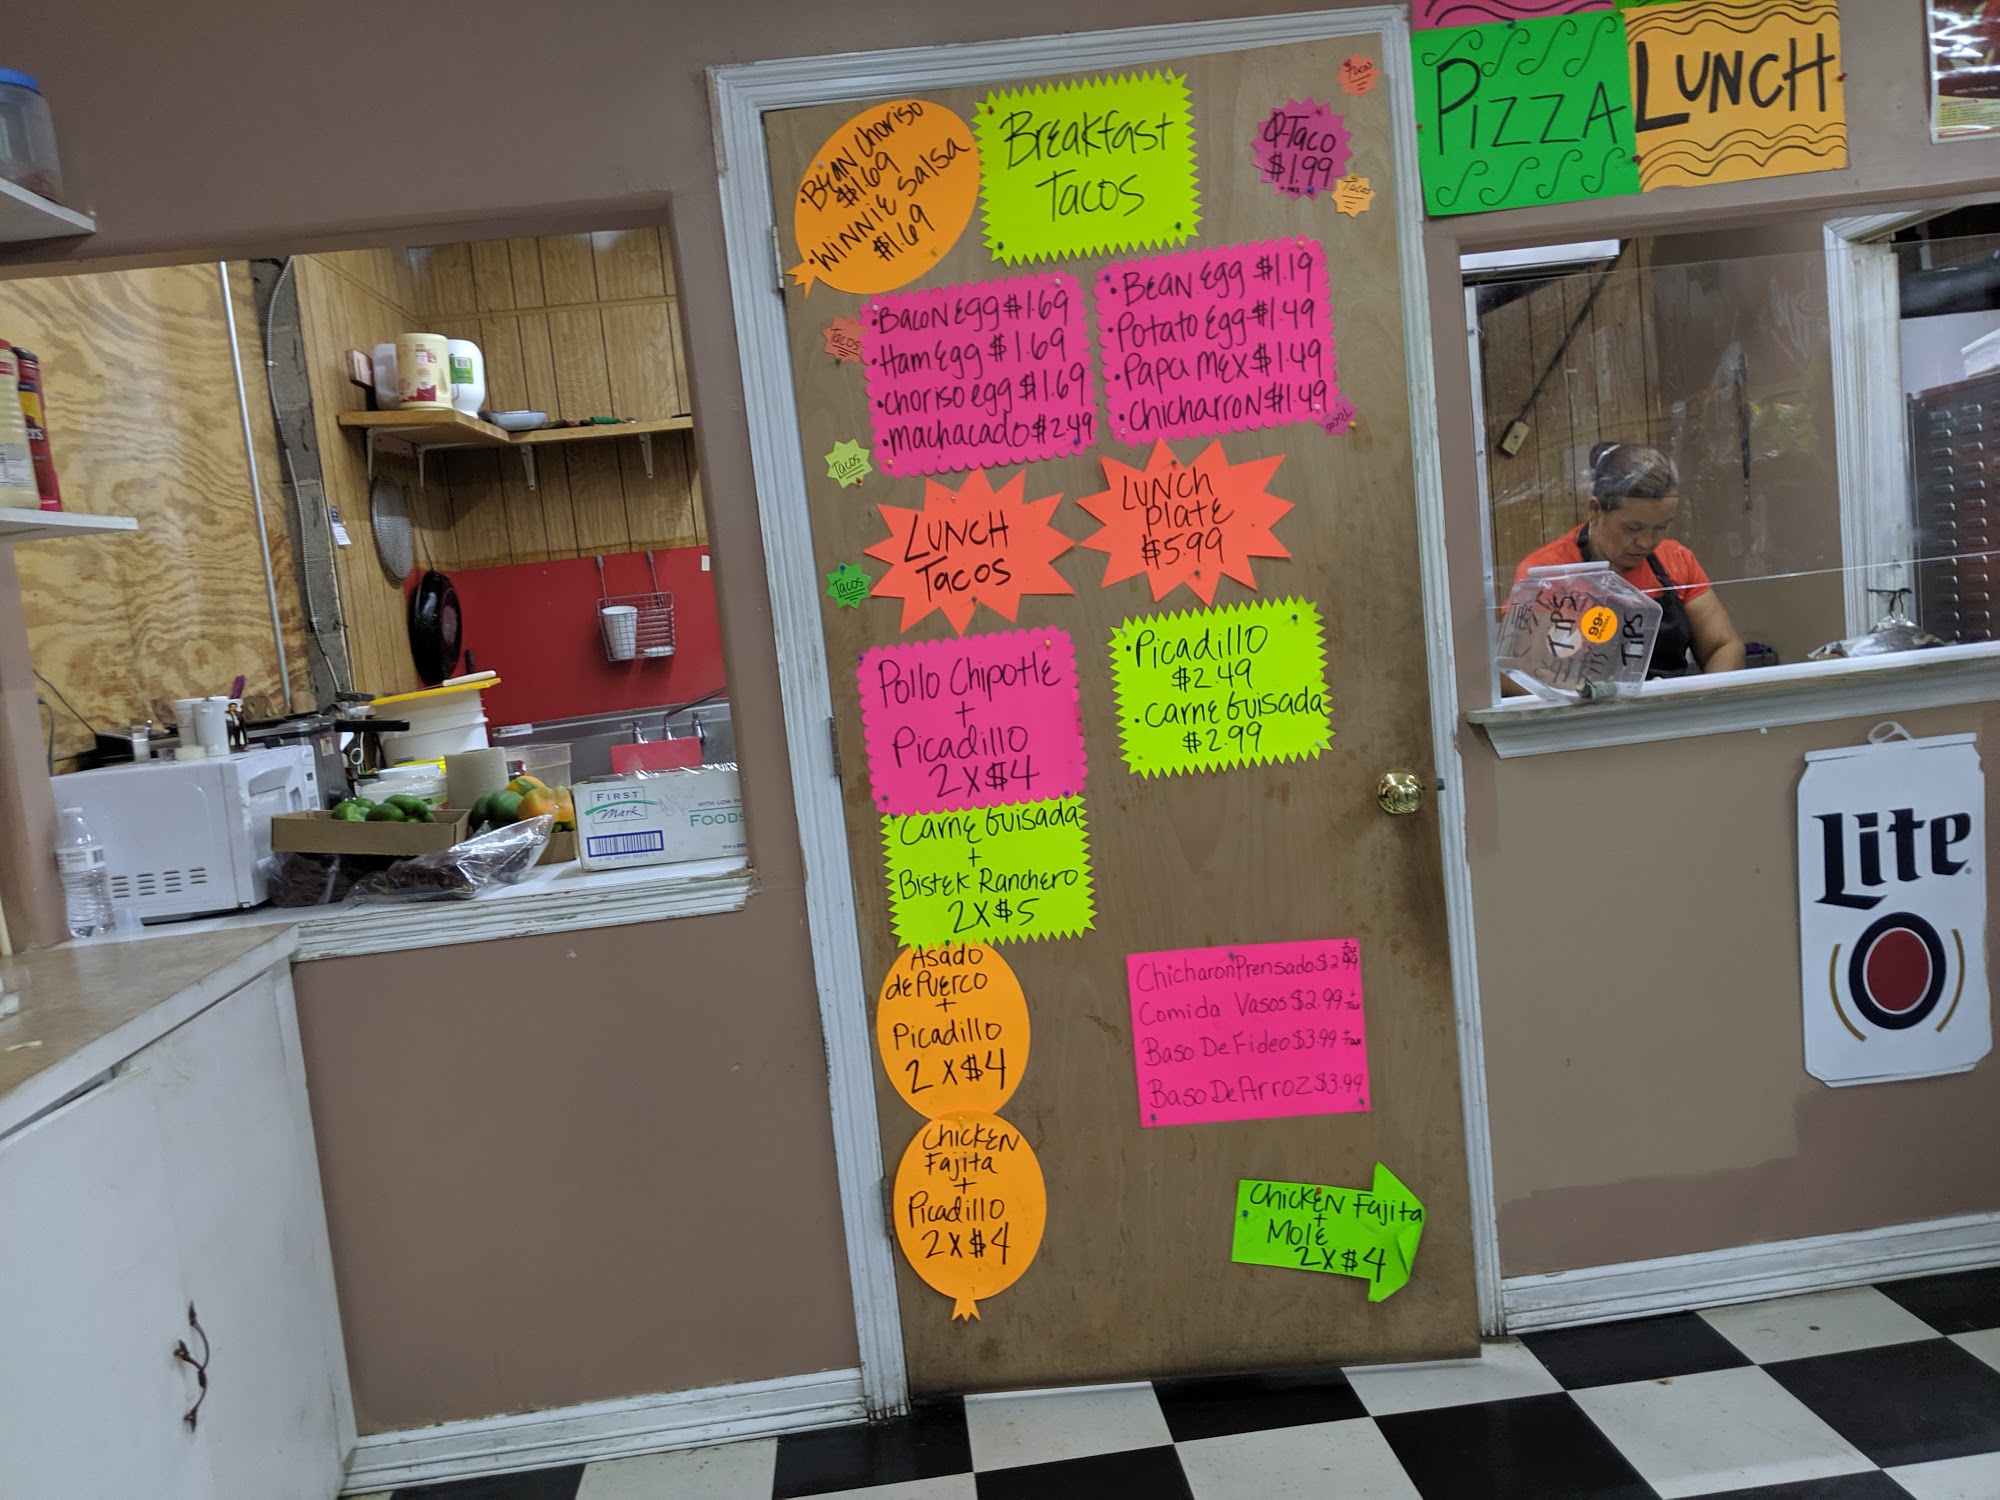 • Bean Choriso
$1.69
• Winnie Salsa
$1.69
Breakfast
Tacos
Q-Taco
$1.99
Tacos
Tacos
PIZZA
LUNCH
• Bacon Egg $1.69
• Ham Egg $1.69
• choriso egg $1.69
• Machacado $2.49
• Bean Egg $1.19
• Potato Egg $1.49
• Papa Mex $1.49
• Chicharron $1.49
Tacos
Tacos
Tacos
Tacos
Lunch
Tacos
Lunch
Plate
$5.99
Pollo Chipotle
+
Picadillo
2 X $4
• Picadillo
$2.49
• Carne Guisada
$2.99
Carne Guisada
+
Bistek Ranchero
2 X $5
Asado
de Puerco
+
Picadillo
2 X $4
Chicken
Fajita
+
Picadillo
2 X $4
Chicharon Prensado $2.99
Comida Vasos $2.99 + Tax
Baso De Fideo $3.99 + Tax
Baso De Arroz $3.99
Chicken Fajita
+
Mole
2 X $4
TIPS
TIPS
TIPS
99¢
Lite
FIRST
Mark
WITH LOW
FOODS